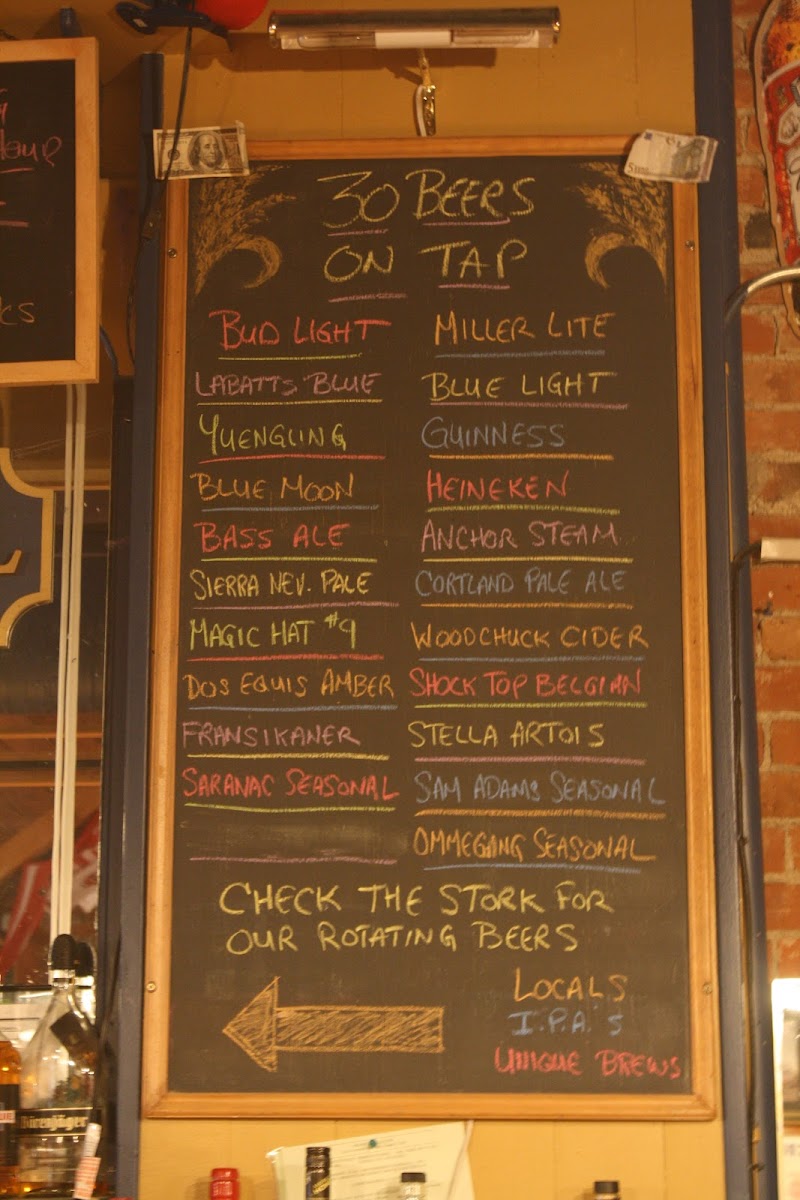 30 BEERS
ON TAP
BUD LIGHT
MILLER LITE
LABATTS BLUE
BLUE LIGHT
YUENGLING
GUINNESS
BLUE MOON
HEINEKEN
BASS ALE
ANCHOR STEAM
SIERRA NEV. PALE
CORTLAND PALE ALE
MAGIC HAT #9
WOODCHUCK CIDER
DOS EQUIS AMBER
SHOCK TOP BELGIAN
FRANSIKANER
STELLA ARTOIS
SARANAC SEASONAL
SAM ADAMS SEASONAL
OMMEGANG SEASONAL
CHECK THE STORK FOR
OUR ROTATING BEERS
LOCALS
I.P.A.'S
UNIQUE BREWS
Bärenjäger